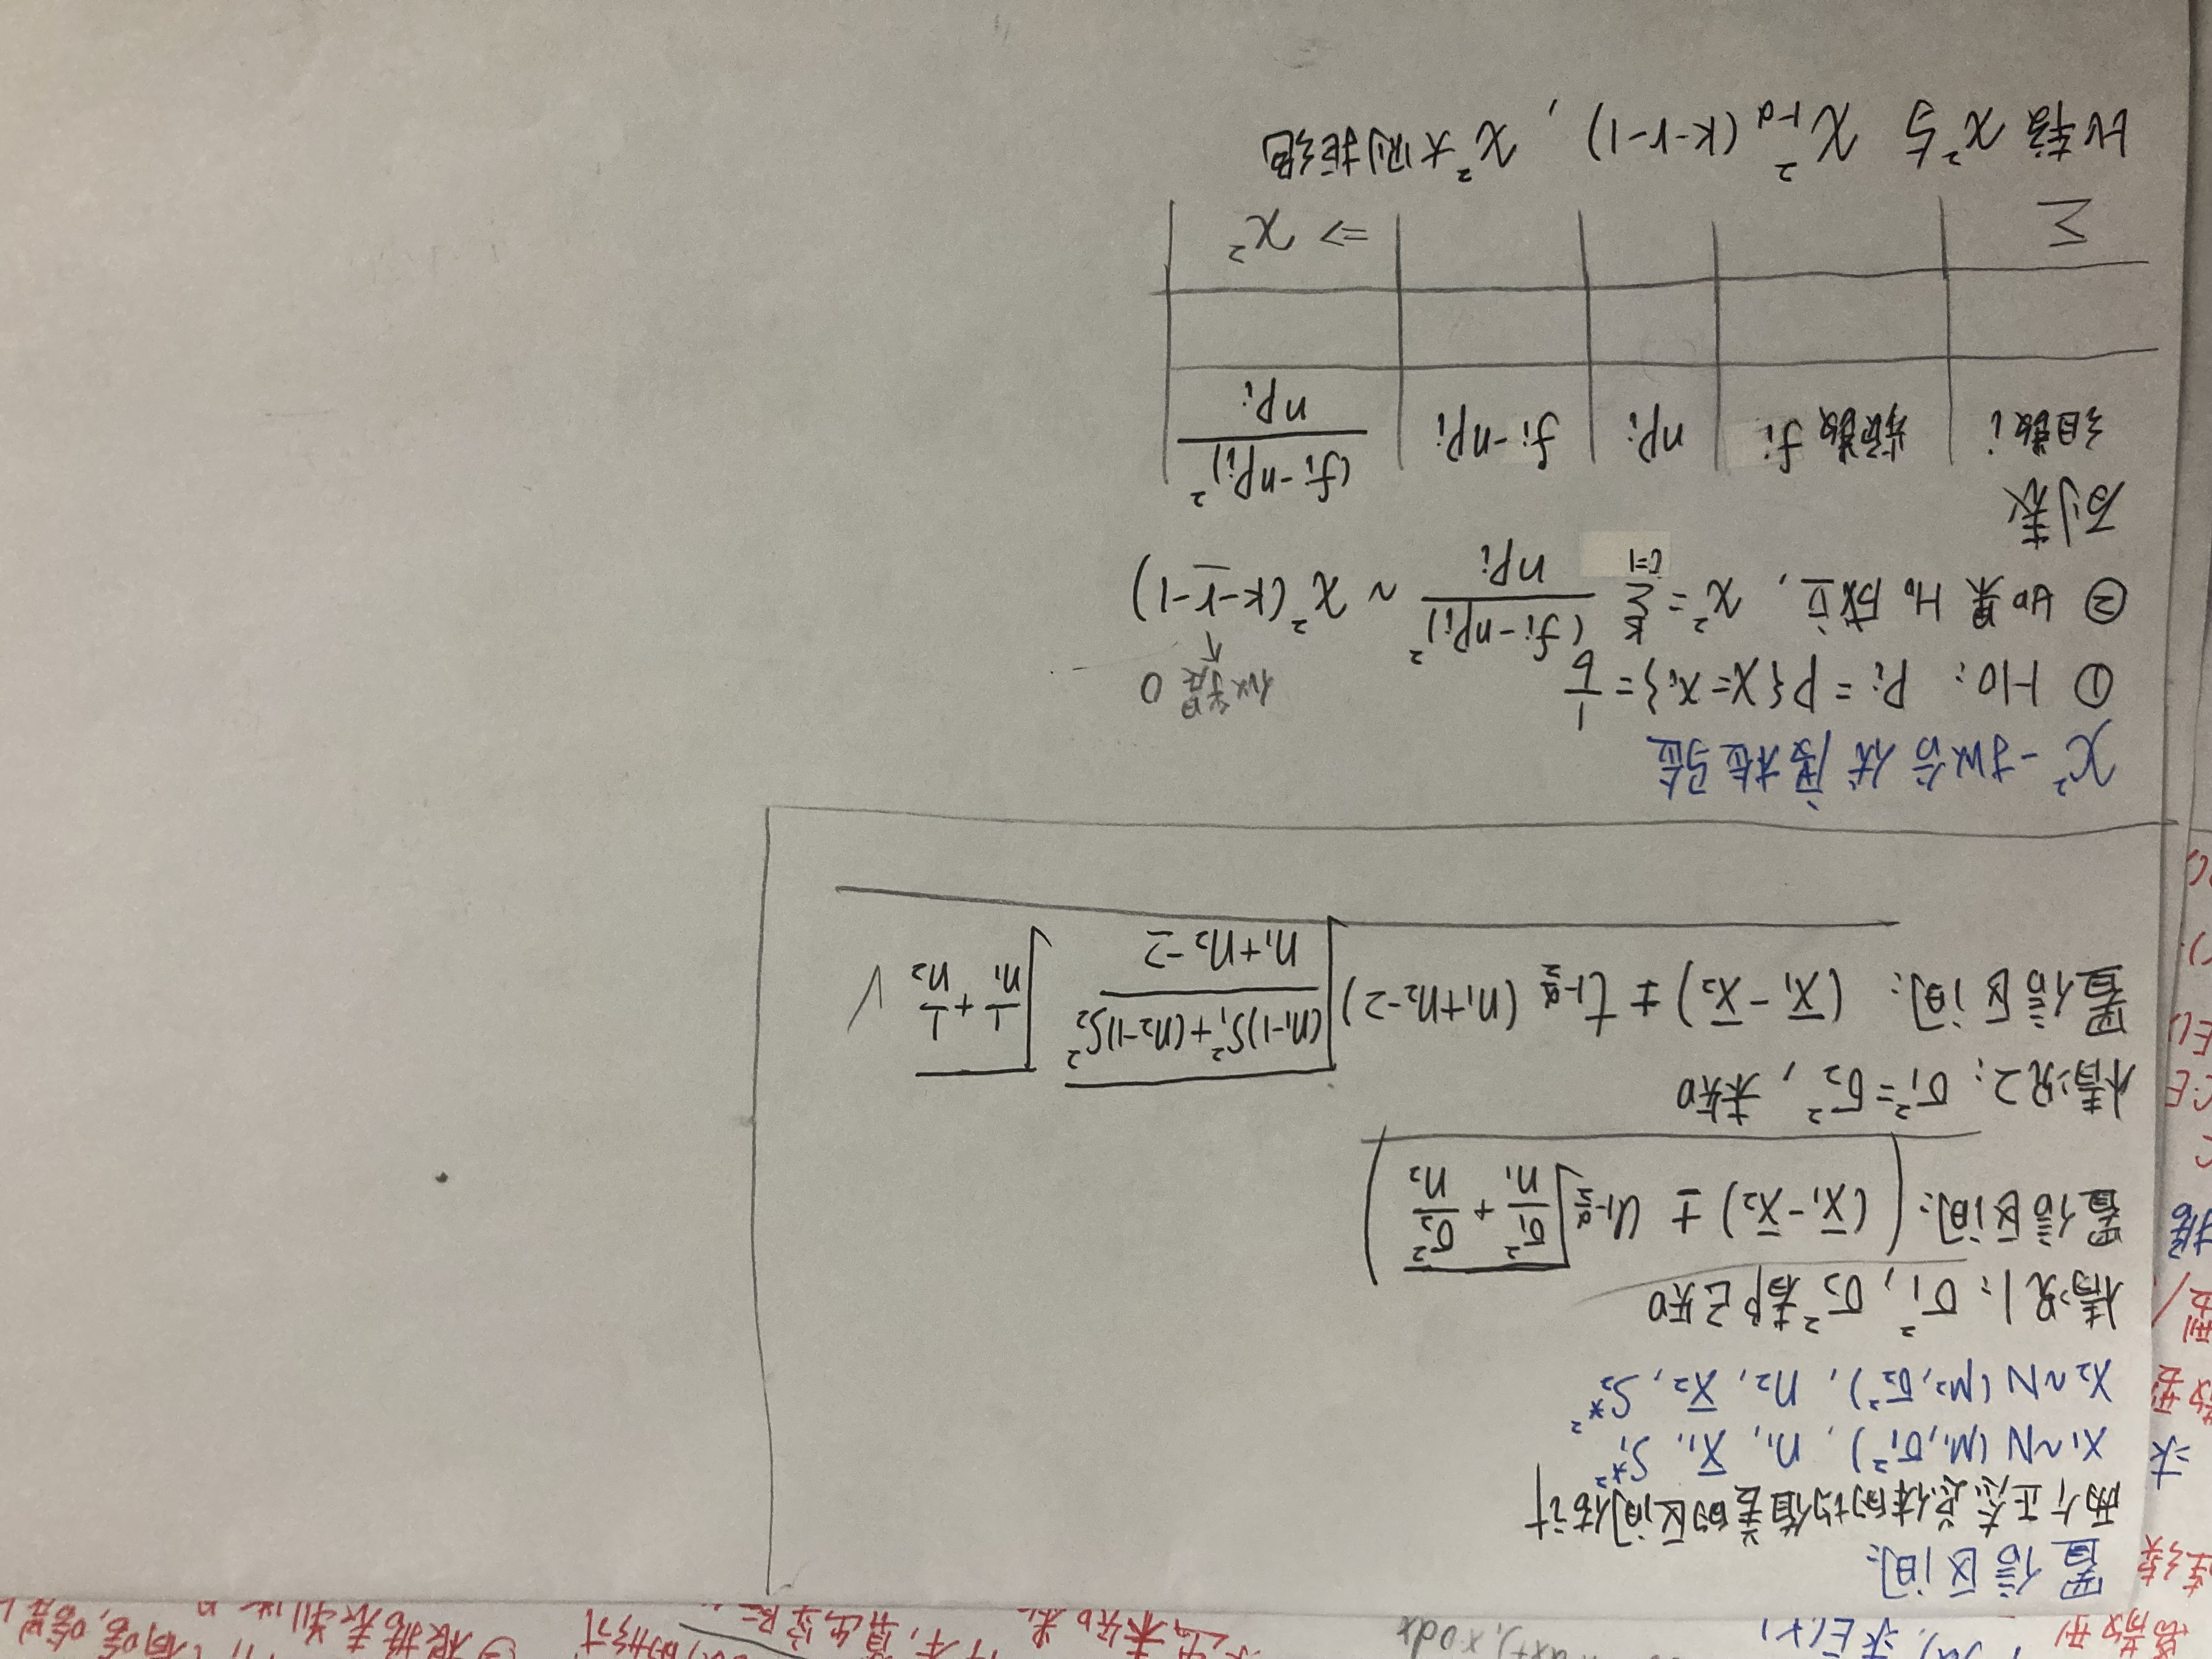 置信区间:
两个正态总体的均值差的区间估计
X₁~N(M₁,σ₁²), n₁, X̄₁, S₁*²
X₂~N(M₂,σ₂²), n₂, X̄₂, S₂*²
情况1: σ₁², σ₂²都已知
置信区间: ((X̄₁-X̄₂) ± U₁₋α/₂ √(σ₁²/n₁ + σ₂²/n₂))
情况2: σ₁²=σ₂², 未知
置信区间: (X̄₁-X̄₂) ± t₁₋α/₂ (n₁+n₂-2) √(((n₁-1)S₁²+(n₂-1)S₂²)/(n₁+n₂-2)) √(1/n₁+1/n₂)
χ²-拟合优度检验
① H0: Pᵢ = P{X=xᵢ} = 1/6
一般是0
② 如果 H₀ 成立, χ² = Σᵢ₌₁ᵏ (fᵢ-npᵢ)²/npᵢ ~ χ²(k-r-1)
列表
组数i 频数fᵢ npᵢ fᵢ-npᵢ (fᵢ-npᵢ)²/npᵢ
Σ ⇒ χ²
比较 χ²与 χ²₁₋α (k-r-1), χ²大则拒绝